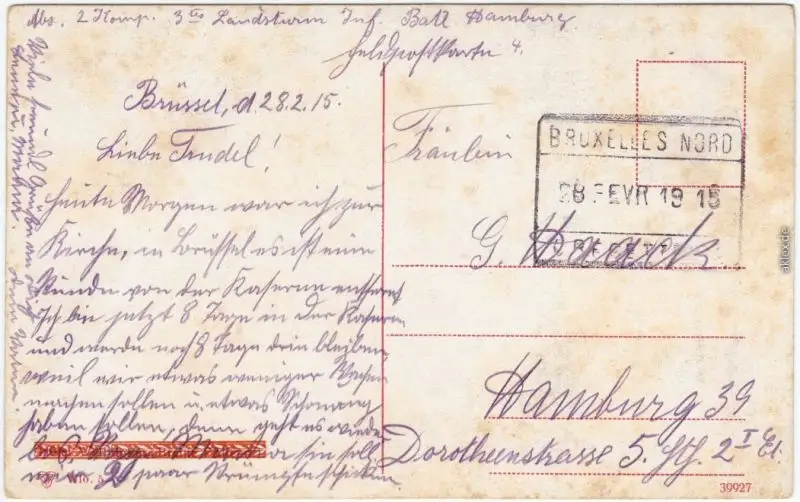 Abs. 2 Komp. 3tes Landsturm Inf. Batl Hamburg
Feldpostkarte 4.
Brüssel, d. 28.2.15.
Liebe Trudel!
Heute Morgen war ich zur
Kirche, in Brüssel es ist eine
Stunde von der Kaserne entfernt
Ich bin jetzt 8 Tage in der Kaserne
und werde noch 8 Tage drin bleiben,
weil wir etwas weniger Wachen
machen sollen u. etwas Schonung
haben sollen, denn geht es wieder
sein soll
paar Strümpfe schicken
Viele
Grüße
Fräulein
G. Haack.
Hamburg 39
Dorotheenstrasse 5. Htf. 2 I Et.
BRUXELLES NORD
28 FEVR 19 15
39927
akpool.de